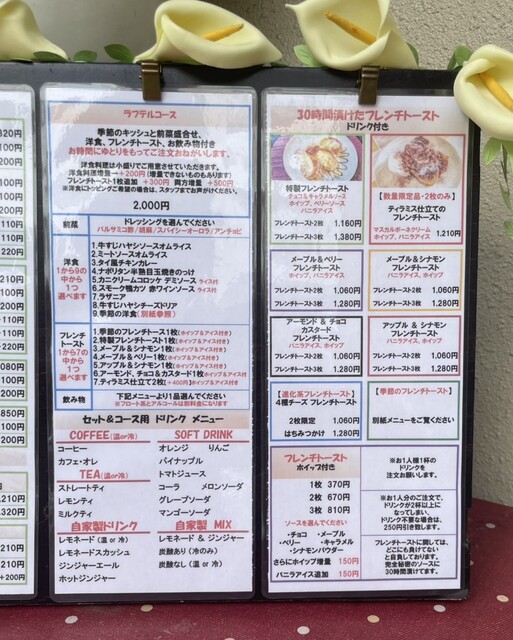 820円
100円
200円
200円
210円
110円
220円
100円
100円
200円
200円
080円
100円
200円
850円
200円
,210円
,320円
210円
210円
+200円
ラフテルコース
季節のキッシュと前菜盛合せ、
洋食、フレンチトースト、お飲み物付き
お時間にゆとりをもってご注文おねがいします。
洋食料理は小盛りでご用意させていただきます。
洋食料理増量→+200円(増量できないものもあります)
フレンチトースト1枚追加 +300円 両方増量 +500円
※洋食にトッピングご希望の場合は、スタッフまでお声がけください
2,000円
前菜
ドレッシングを選んでください
バルサミコ酢/胡麻/スパイシーオーロラ/アンチョビ
洋食
1から9の
中から
1つ
選べます
1.牛すじハヤシソースオムライス
2.ミートソースオムライス
3.タイ風チキンカレー
4.ナポリタン半熟目玉焼きのっけ
5.カニクリームコロッケ デミソース ライス付
6.スモーク鴨カツ 赤ワインソース ライス付
7.ラザニア
8.牛すじハヤシチーズドリア
9.季節の洋食(別紙参照)
フレンチ
トースト
1から7の
中から
1つ
選べます
1.季節のフレンチトース1枚(ホイップ&アイス付き)
2.特製フレンチトースト1枚(ホイップ&アイス付き)
3.メープル&シナモン1枚(ホイップ&アイス付き)
4.メープル&ベリー1枚(ホイップ&アイス付き)
5.アップル&シナモン1枚(ホイップ&アイス付き)
6.アーモンド、チョコ&カスタード1枚(ホイップ&アイス付き)
7.ティラミス仕立て2枚(+400円)(ホイップ&アイス付き)
飲み物
下記メニューより1品選んでください
※フロート系とアルコールは別料金になります
セット&コース用 ドリンク メニュー
COFFEE(温or冷)
コーヒー
カフェ・オレ
TEA(温or冷)
ストレートティ
レモンティ
ミルクティ
自家製ドリンク
レモネード(温 or 冷)
レモネードスカッシュ
ジンジャーエール
ホットジンジャー
SOFT DRINK
オレンジ りんご
パイナップル
トマトジュース
コーラ メロンソーダ
グレープソーダ
マンゴーソーダ
自家製 MIX
レモネード & ジンジャー
炭酸あり(冷のみ)
炭酸なし(温 or 冷)
30時間漬けたフレンチトースト
ドリンク付き
特製フレンチトースト
チョコ&キャラメルソース
ホイップ、ベリーソース
バニラアイス
フレンチトースト2枚 1,160円
フレンチトースト3枚 1,380円
【数量限定品-2枚のみ】
ティラミス仕立ての
フレンチトースト
マスカルポーネクリーム
ホイップ、バニラアイス 1,210円
メープル&ベリー
フレンチトースト
ホイップ、バニラアイス
フレンチトースト2枚 1,060円
フレンチトースト3枚 1,280円
メープル&シナモン
フレンチトースト
ホイップ、バニラアイス
フレンチトースト2枚 1,060円
フレンチトースト3枚 1,280円
アーモンド & チョコ
カスタード
フレンチトースト
バニラアイス、ホイップ
フレンチトースト2枚 1,060円
フレンチトースト3枚 1,280円
アップル & シナモン
フレンチトースト
バニラアイス、ホイップ
フレンチトースト2枚 1,060円
フレンチトースト3枚 1,280円
【進化系フレンチトースト】
4種チーズ フレンチトースト
2枚限定 1,060円
はちみつかけ 1,280円
【季節のフレンチトースト】
別紙メニューをご覧ください
フレンチトースト
ホイップ付き
1枚 370円
2枚 670円
3枚 810円
ソースを選んでください
・チョコ ・メープル
・ベリー ・キャラメル
・シナモンパウダー
さらにホイップ増量 150円
バニラアイス追加 150円
※お1人種1杯の
ドリンクを
注文お願いします。
※お1人分のご注文で、
ドリンクが2杯以上に
なってしまい、
ドリンク不要な場合は、
250円引き致します。
フレンチトーストに関しては、
どこにも負けてない
と自負しております。
完全秘密のソースに
30時間漬けてます。